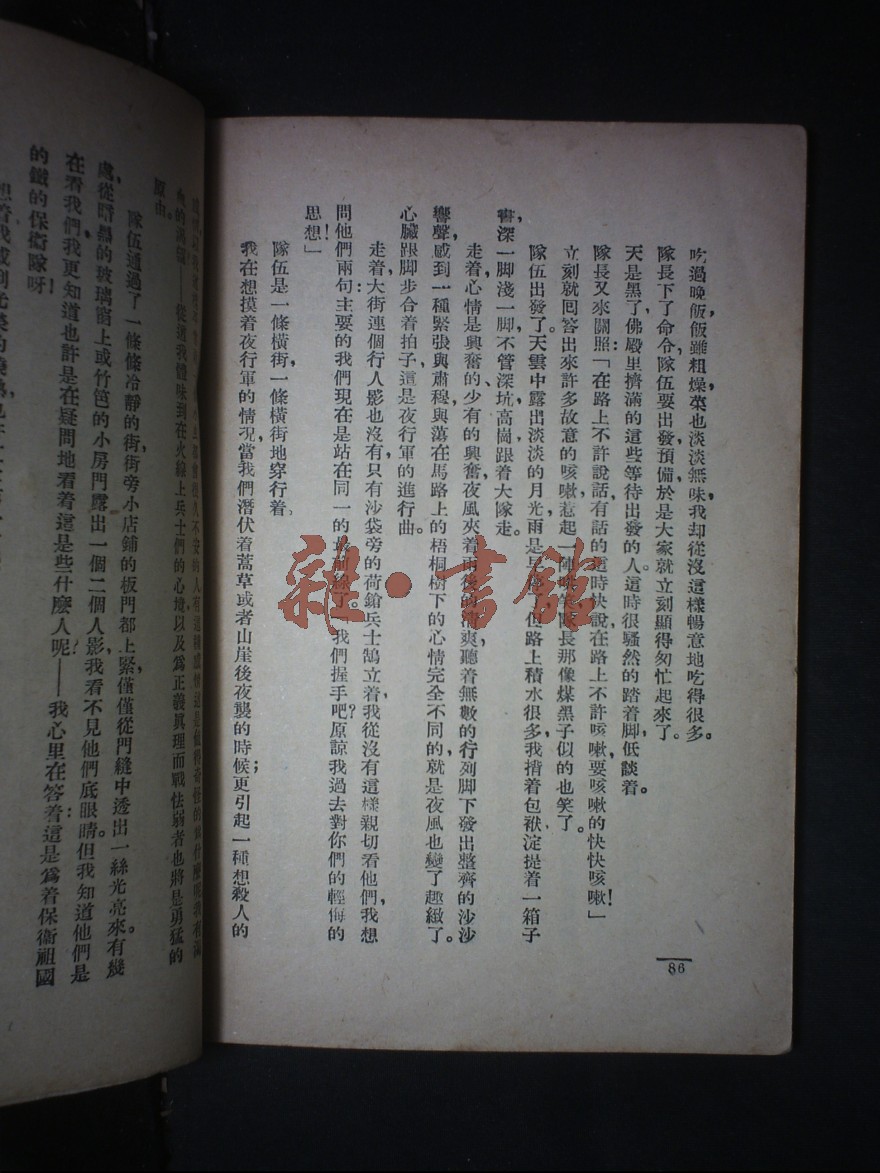 吃過晚飯，飯雖粗燥，菜也淡淡無味，我却從沒這樣暢意地吃得很多。
隊長下了命令，隊伍要出發，預備，於是大家就立刻顯得匆忙起來了。
天是黑了，佛殿里擠滿的這些等待出發的人。這時很騷然的踏着脚，低談着。
隊長又來關照：「在路上不許說話，有話的這時快說，在路上不許咳嗽，要咳嗽的快快咳嗽！」
立刻就囘答出來許多故意的咳嗽，惹起一陣哄笑，隊長那像煤黑子似的也笑了。
隊伍出發了。天雲中露出淡淡的月光，雨是早停了，但路上積水很多，我揹着包袱，淀提着一箱子
書，深一脚淺一脚，不管深坑高崗，跟着大隊走。
走着，心情是興奮的、少有的興奮，夜風夾着雨後的清爽，聽着無數的行列脚下發出整齊的沙沙
響聲，感到一種緊張與肅穆，與蕩在馬路上的梧桐樹下的心情完全不同的，就是夜風也變了趣緻了。
心臟跟脚步合着拍子，這是夜行軍的進行曲。
走着大街，連個行人影也沒有，只有沙袋旁的荷鎗兵士鵠立着，我從沒有這樣親切看他們，我想
問他們兩句：主要的我們現在是站在同一的最前線了。我們握手吧？原諒我過去對你們的輕侮的
思想！」
隊伍是一條橫街，一條橫街地穿行着。
我在想摸着夜行軍的情况，當我們潛伏着蒿草或者山崖後夜襲的時候，更引起一種想殺人的
86
從這我體味到在火線上兵士們的心境，以及爲正義眞理而戰，怯弱者也將是勇猛的
原由。
隊伍通過了一條條冷靜的街，街旁小店舖的板門都上緊，僅僅從門縫中透出一絲光亮來。有幾
處，從暗黑的玻璃窗上或竹笆的小房門露出一個二個人影，我看不見他們底眼睛，但我知道他們是
在看我們，我更知道也許是在疑問地看着：這是些什麽人呢？——我心里在答着：這是爲着保衛祖國
的鐵的保衛隊呀！
雜·書館